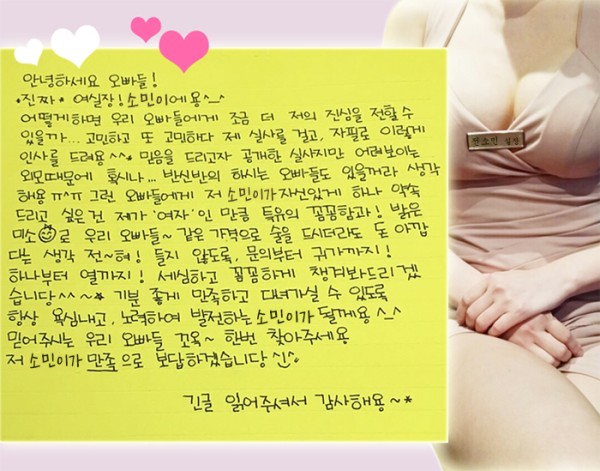 안녕하세요 오빠들!
*진짜* 여실장! 소민이에용^-^
어떻게하면 우리 오빠들에게 조금 더 저의 진심을 전할 수
있을까... 고민하고 또 고민하다 제 실사를 걸고, 자필로 이렇게
인사를 드려용^^* 믿음을 드리고자 공개한 실사지만 어려보이는
외모때문에 혹시나... 반신반의 하시는 오빠들도 있을꺼라 생각
해용ㅠ^ㅠ 그런 오빠들에게 저 소민이가 자신있게 하나 약속
드리고 싶은건 제가 '여자'인 만큼 특유의 꼼꼼함과! 밝은
미소로 우리 오빠들~ 같은 가격으로 술을 드시더라도 돈 아깝
다는 생각 전~혀! 들지 않도록, 문의부터 귀가까지!
하나부터 열까지! 세심하고 꼼꼼하게 챙겨봐드리겠
습니당^^~* 기분 좋게 만족하고 다녀가실 수 있도록
항상 욕심내고, 노력하여 발전하는 소민이가 될게용^-^
믿어주시는 우리 오빠들 꼬옥~ 한번 찾아주세용
저 소민이가 만족으로 보답하겠습니당^^
긴글 읽어주셔서 감사해용~*